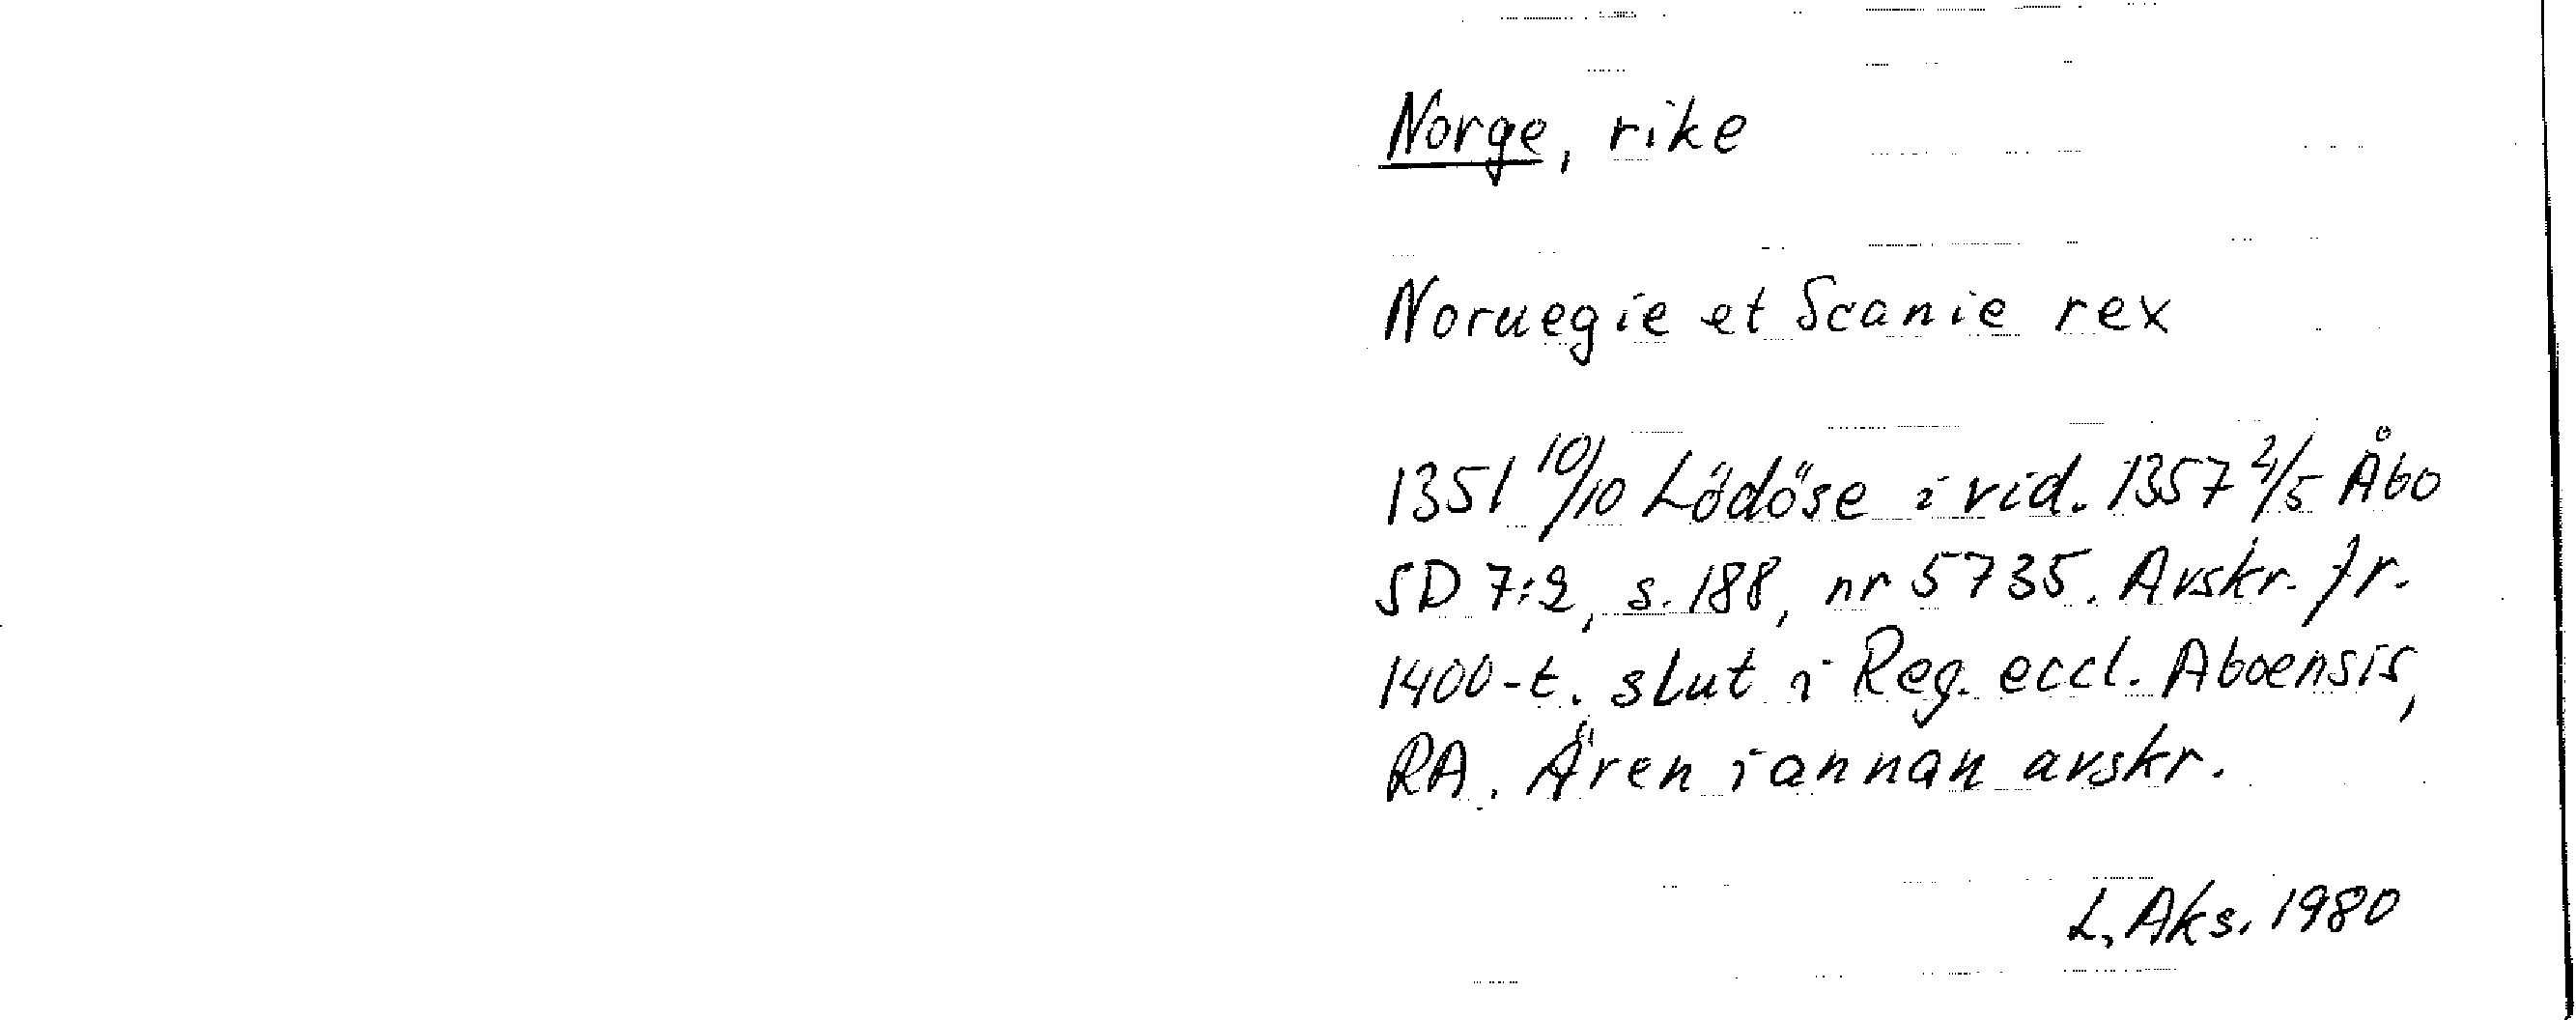 Norge, rike
Noruegie et Scanie rex
1351 10/10 Lödöse i vid. 1357 2/5 Åbo
SD 7:2, s. 188, nr 5735. Avskr. fr.
1400-t. slut i Reg. eccl. Aboensis,
RA. Även i annan avskr.
L. Aks. 1980